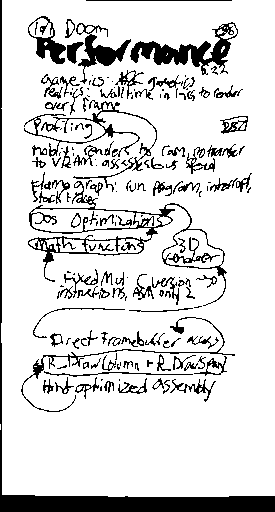 Doom
Performance
5.22
gametics: gametics
realtics: walltime in tics to render
every frame
Profiling
noblit: renders to ram, no transfer
to VRAM: assesses bus speed
Flame graph: run program, interrupt,
stack traces
Dos Optimizations
Math functions
3D
renderer
FixedMul: C version
instructions, ASM only 2
Direct Framebuffer access
R_DrawColumn + R_DrawSpan
Hand optimized assembly